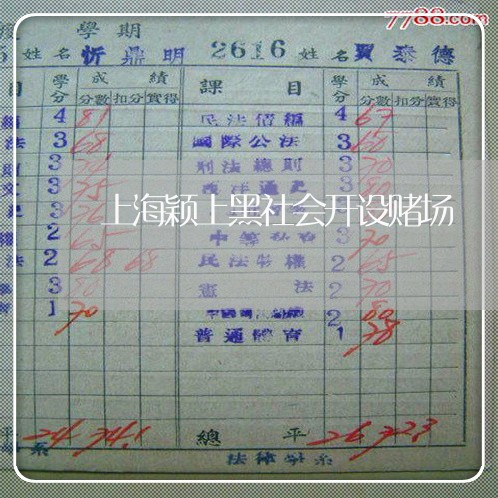 7788.com
學期
姓名 忻鼎明 2616 姓名 賈泰德
目 學分 成績 課目 學分 成績
分數 扣分 實得 分數 扣分 實得
4 81 民法債編 4 67
法 3 68 國際公法 3 60
3 刑法總則 3 70
3 75 西洋通史 3 80
3 76 3
上海颖上黑社会开设赌场
2 65 3 70
法 2 68 68 民法物權 2 65
3 80 憲法 2 70
1 70 2 80
普通體育 1 78
平 24 74.1 總平 26 72.3
系 法律學系